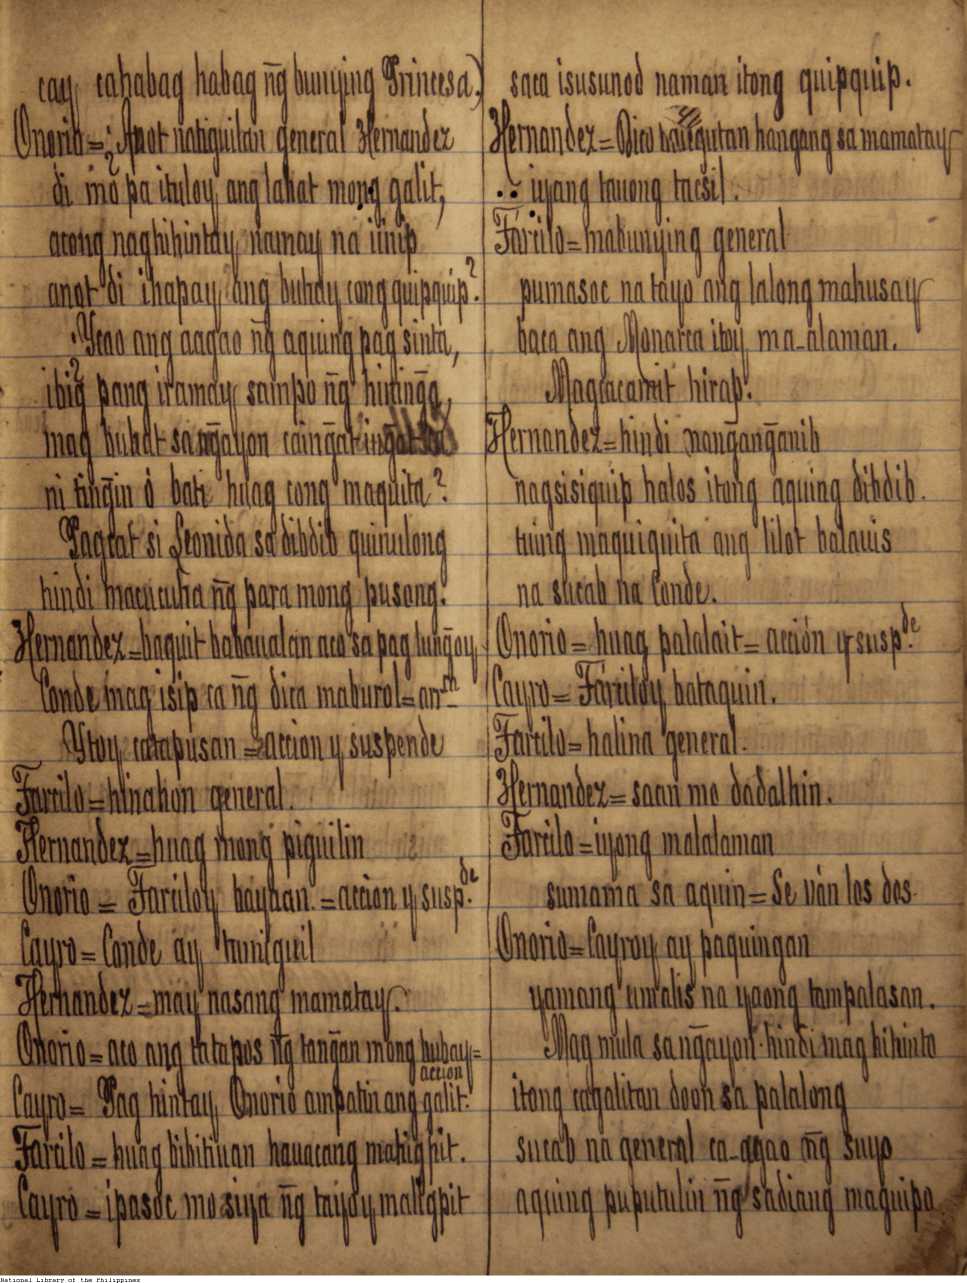 cay cahabag habag n͠g bunying Princesa.)
Onorio = ¿Anot natiguilan general Hernandez
di mo pa ituloy ang lahat mong galit,
acong naghihintay namay na iinip
anot di ihapay ang buhay cong quipquip?
Ycao ang aagao n͠g aquing pag sinta,
ibig pang iramay sampo n͠g hining̃a,
mag buhat sa ng̃ayon caing̃at ing̃at
ni ting̃in ó bati huag cong maquita?
Pagcat si Leonida sa dibdib quinulong
hindi macucuha n͠g para mong pusong.
Hernandez = baquit babaualan aco sa pag tung̃oy
Conde mag isip ca n͠g dica maburol =
Ytoy catapusan = accion y suspende
Farcilo = hinahon general.
Hernandez = huag mong piguilin
Onorio = Farciloy bayaan. = accion y susp.de
Cayro = Conde ay tumiguil
Hernandez = may nasang mamatay.
Onorio = aco ang tatapos n͠g tang̃an mong buhay =
accion
Cayro = Pag hintay Onorio ampatin ang galit.
Farcilo = huag bibitiuan hauacang mahigpit.
Cayro = ipasoc mo siya n͠g taiyoy maligpit
saca isusunod naman itong quipquip.
Hernandez = Dico hangang sa mamatay
iyang tauong tacsil.
Farcilo = mabunying general
pumasoc na tayo ang lalong mahusay
baca ang Monarca itoy ma-alaman.
Magcacamit hirap.
Hernandez = hindi nang̃ang̃anib
nagsisiquip halos itong aquing dibdib.
tuing maquiquita ang lilot balauis
na sucab na Conde.
Onorio = huag palalait = acción y susp.de
Cayro = Farciloy bataquin.
Farcilo = halina general.
Hernandez = saan mo dadalhin.
Farcilo = iyong malalaman
sumama sa aquin = Se ván los dos.
Onorio = Cayroy ay paquingan
yamang umalis na yaong tampalasan.
Mag mula sa ng̃ayon hindi mag hihinto
itong cagalitan doon sa palalong
sucab na general ca-agao n͠g suyo
aquing puputulin n͠g sadiang maguipo
National Library of the Philippines